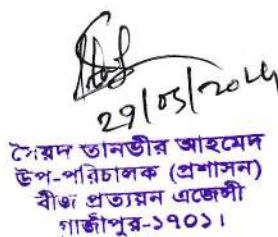 ২৭/০৫/২০২৫
সৈয়দ তানভীর আহমেদ
উপ-পরিচালক (প্রশাসন)
বীজ প্রত্যয়ন এজেন্সী
গাজীপুর-১৭০১।